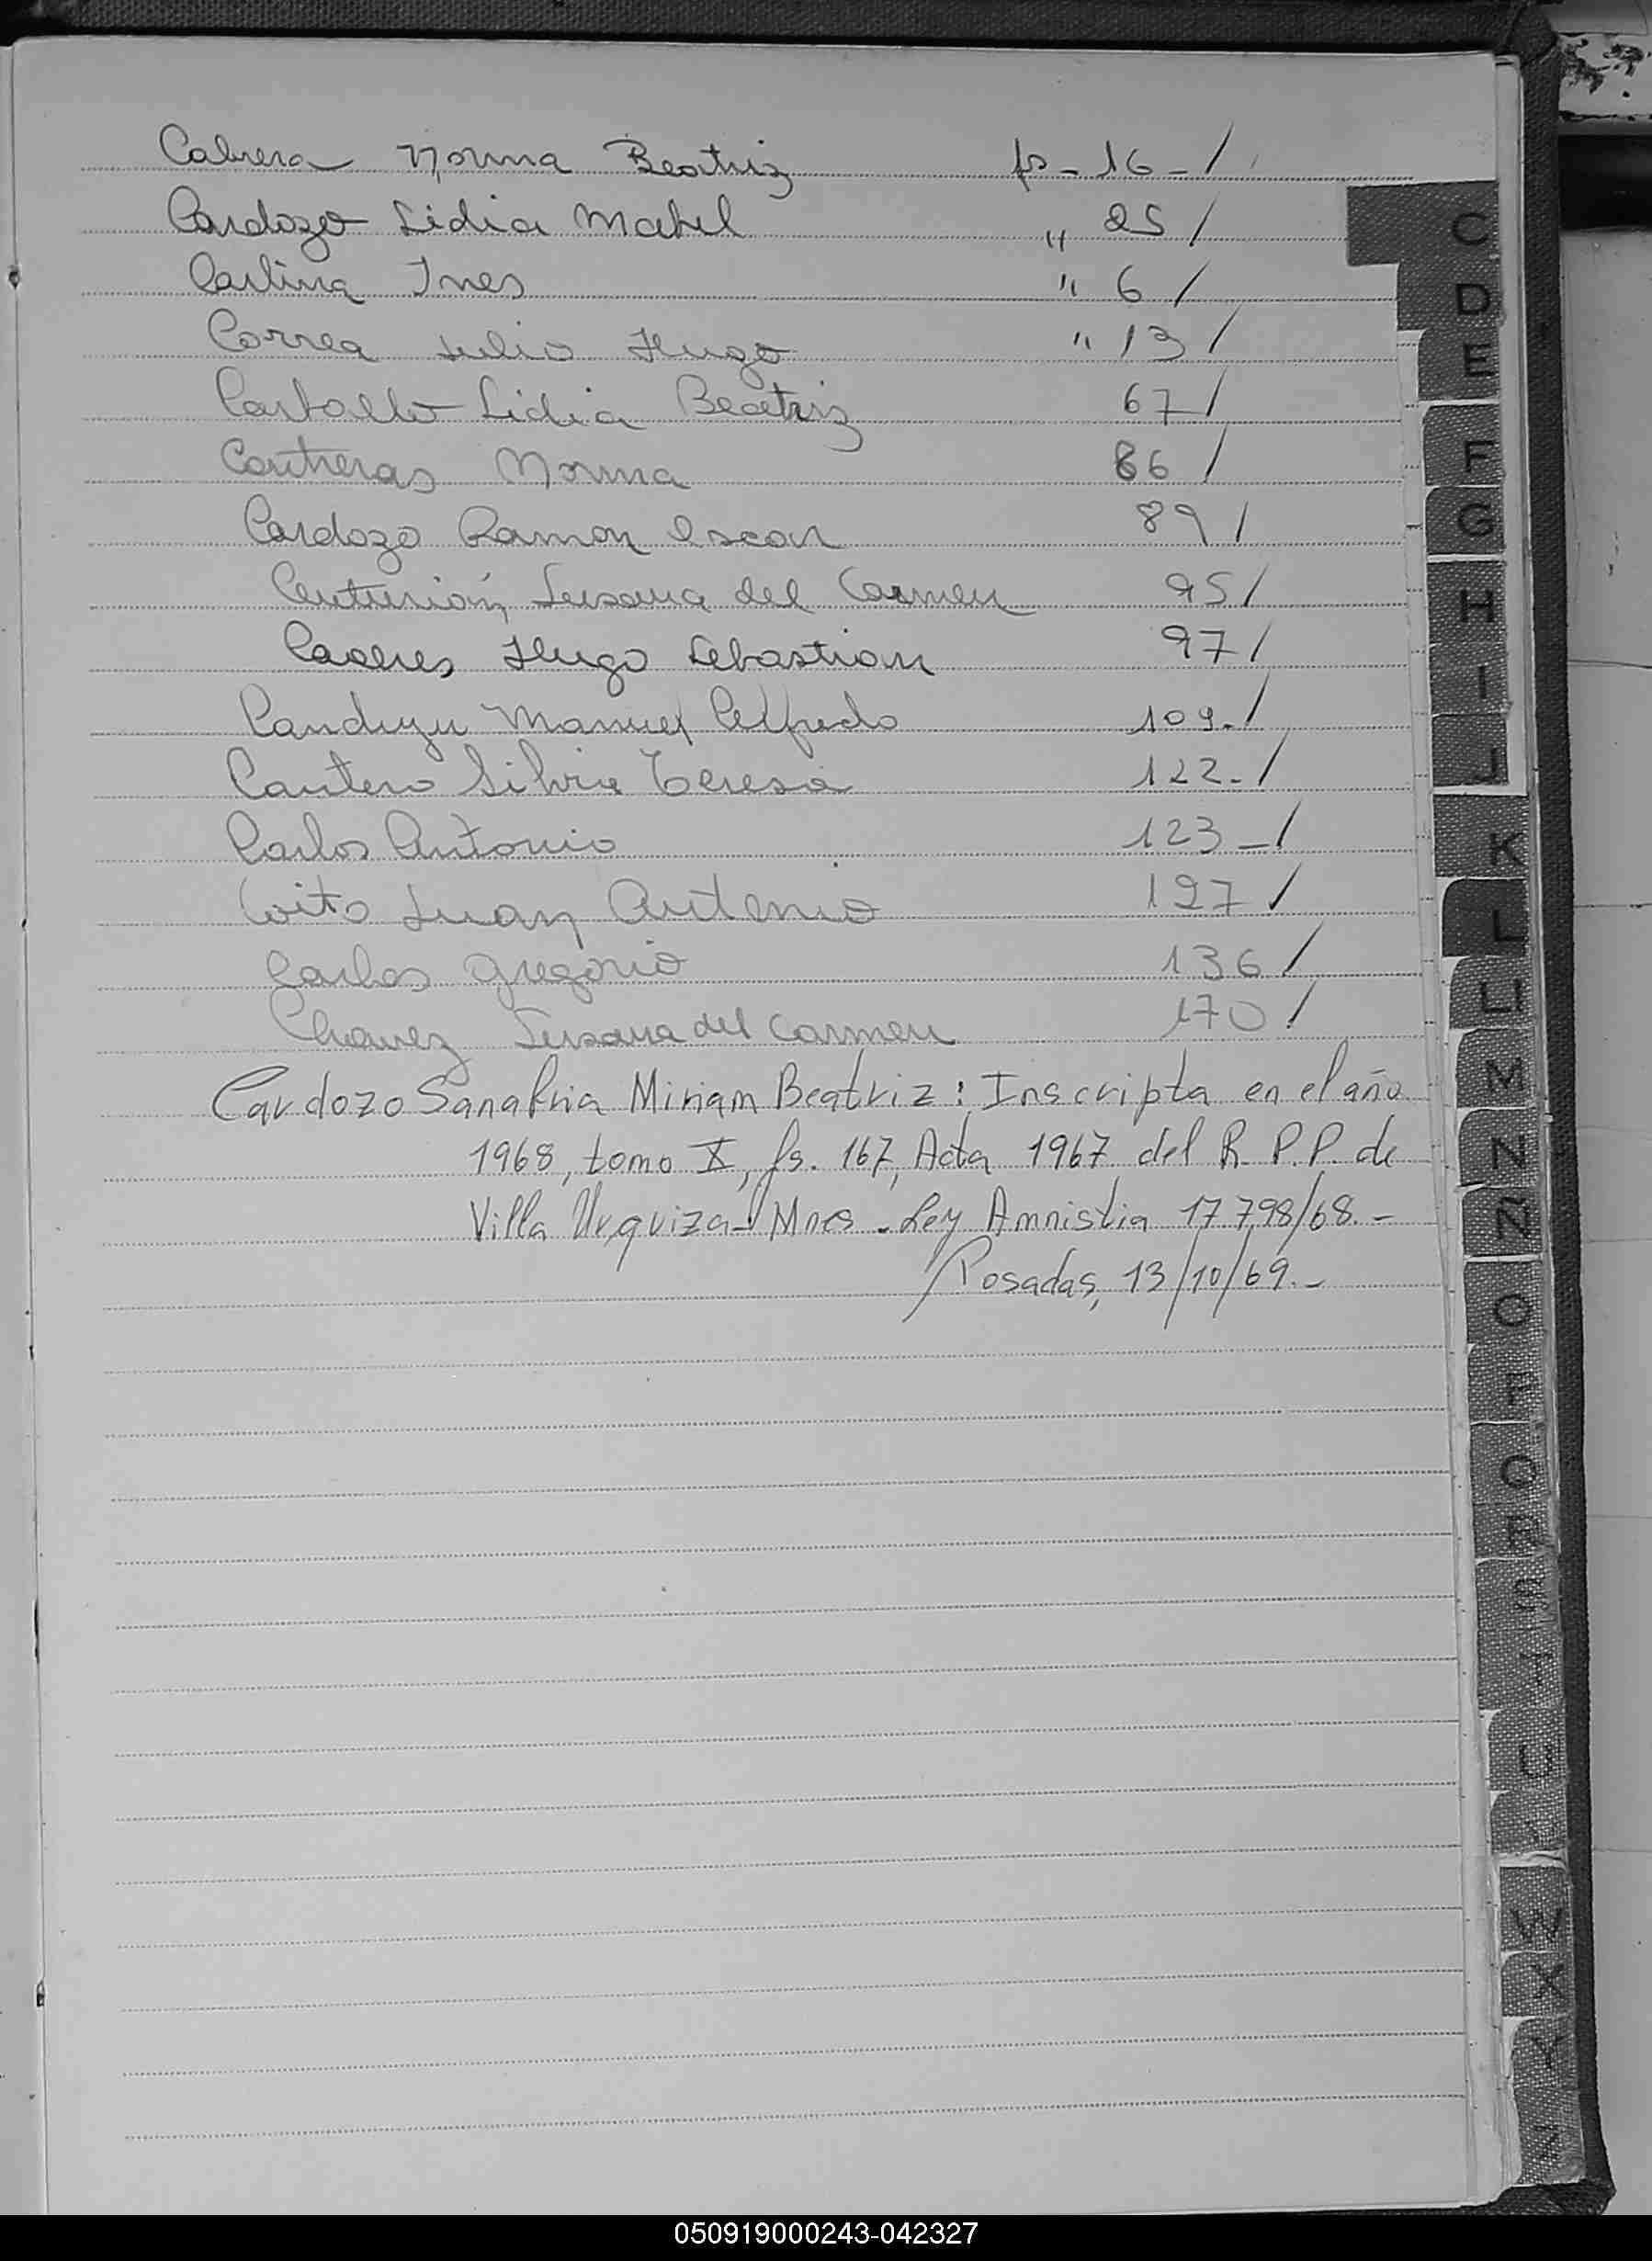 Cabrera Norma Beatriz fs - 16 - /
Cardozo Lidia Mabel " 25 /
Carlina Ines " 6 /
Correa Julio Hugo " 13 /
Carballo Lidia Beatriz 67 /
Contreras Norma 86 /
Cardozo Ramon Oscar 89 /
Centurión, Susana del Carmen 95 /
Caceres Hugo Sebastian 97 /
Canduyu Manuel Alfredo 109.- /
Cantero Silvia Teresa 122.- /
Carlos Antonio 123 - /
Coito Juan Antonio 127 /
Carlos Gregorio 136 /
Chavez Susana del Carmen 170 /
Cardozo Sanabria Miriam Beatriz: Inscripta en el año
1968, tomo X, fs. 167, Acta 1967 del R. P.P. de
Villa Urquiza - Mnes - Ley Amnistia 17.798/68.-
Posadas, 13/10/69.-
C
D
E
F
G
H
I
J
K
L
LL
M
N
Ñ
O
P
Q
R
S
T
U
V
W
X
Y
Z
050919000243-042327